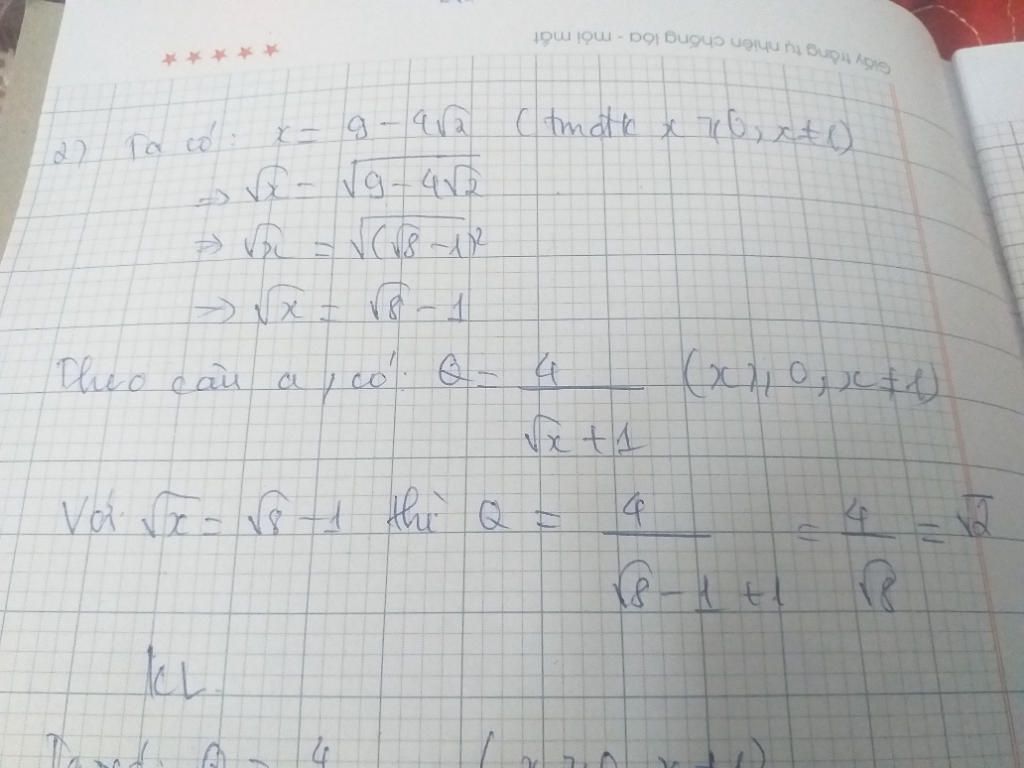 Giấy trắng tự nhiên chống lóa - mỏi mắt
2) Ta có: x = 9 - 4√2 (tmđk x ≥ 0, x ≠ 1)
=> √x = √(9 - 4√2)
=> √x = √((√8 - 1)²)
=> √x = √8 - 1
Theo câu a, có: Q = 4/(√x + 1) (x ≥ 0, x ≠ 1)
Với √x = √8 - 1 thì Q = 4/(√8 - 1 + 1) = 4/√8 = √2
KL
Q = 4 (x ≥ 0, x ≠ 1)